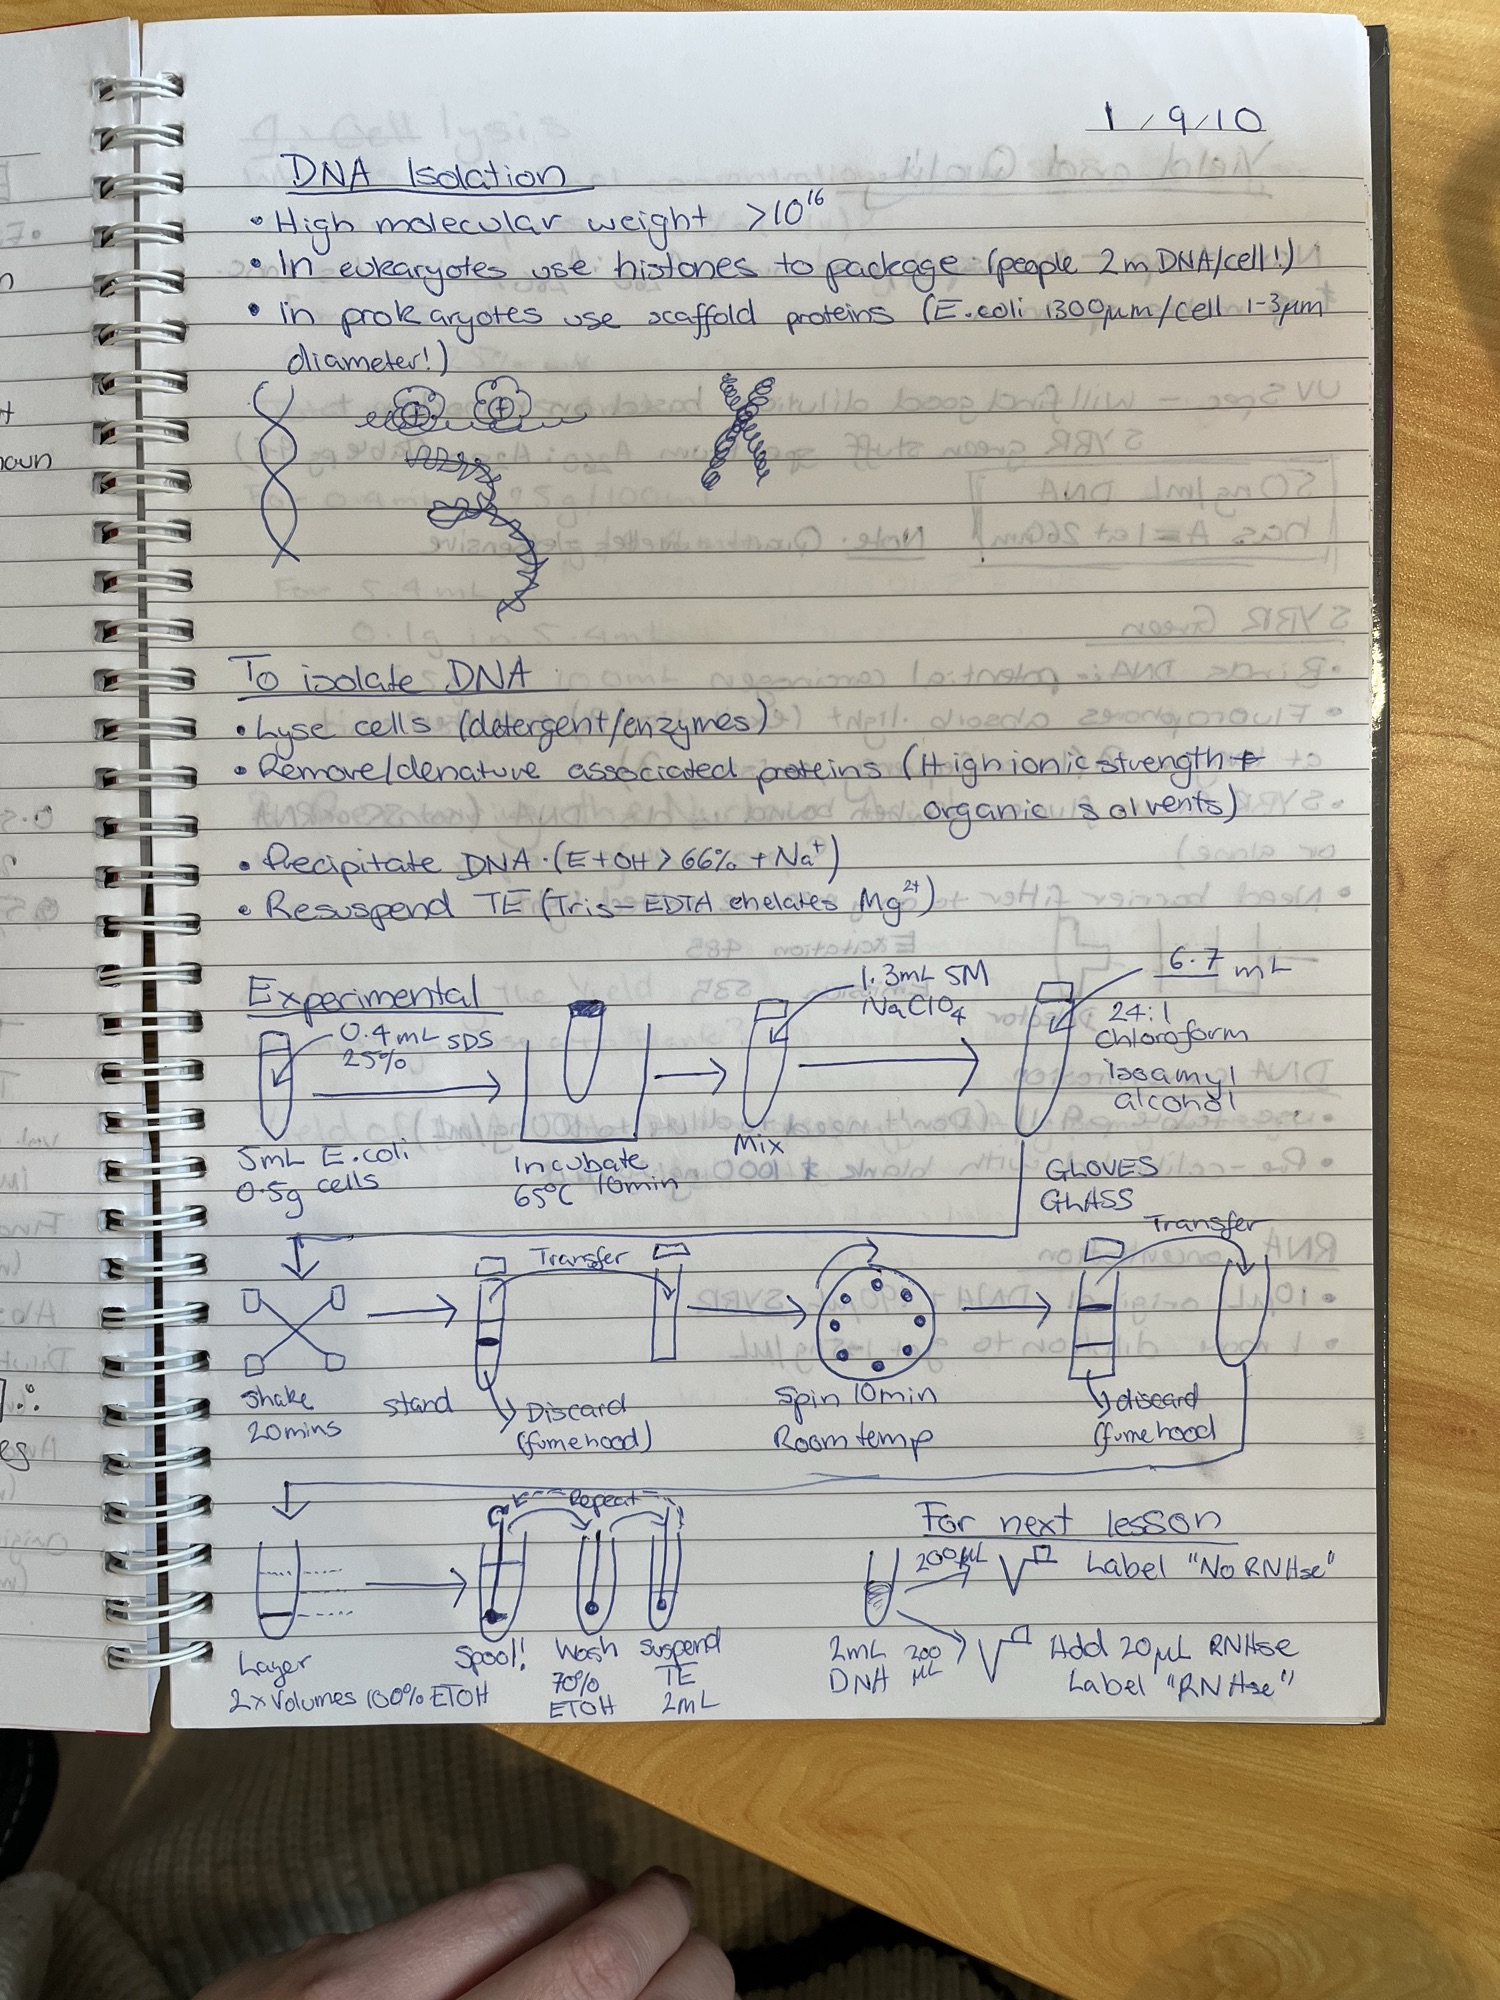 1/9/10
DNA Isolation
• High molecular weight >10¹⁶
• In eukaryotes use histones to package (people 2m DNA/cell!)
• In prokaryotes use scaffold proteins (E.coli 1300μm/cell 1-3μm
diameter!)
To isolate DNA
• Lyse cells (detergent/enzymes)
• Remove/denature associated proteins (High ionic strength +
organic solvents)
• Precipitate DNA (EtOH > 66% + Na⁺)
• Resuspend TE (Tris-EDTA chelates Mg²⁺)
Experimental
0.4mL SDS
25%
1.3mL 5M
NaClO₄
6.7 mL
24:1
chloroform
isoamyl
alcohol
5mL E.coli
0.5g cells
Incubate
65°C 10min
Mix
GLOVES
GLASS
Shake
20mins
stand
Transfer
Discard
(fumehood)
Spin 10min
Room temp
Transfer
discard
(fumehood
Layer
2x volumes 100% ETOH
Repeat
Spool!
Wash
70%
ETOH
suspend
TE
2mL
For next lesson
2mL
DNA
200μL
Label "No RNAse"
200
μL
Add 20μL RNAse
Label "RNAse"